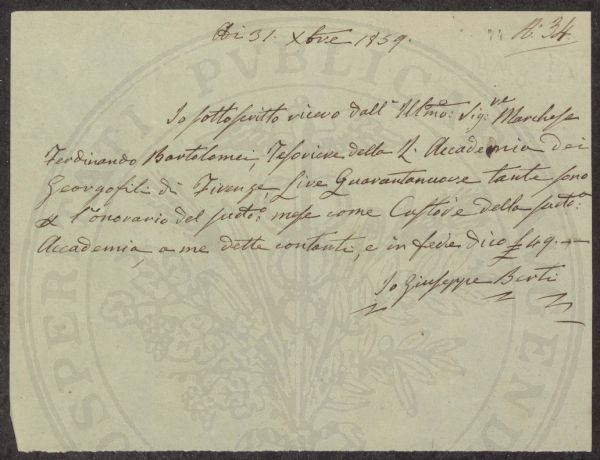 Adi 31. Xbre 1859.
N. 34
Io sottoscritto ricevo dall' Illmo: Sig:re Marchese
Ferdinando Bartolomei, Tesoriere della R. Accademia dei
Georgofili di Firenze Lire Quarantanuove tante sono
l'onorario del sudto: mese come Custode della sudta:
Accademia, a me dette contanti, e in fede dico £ 49.—
Io Giuseppe Berti
PROSPERITATI PUBLICAE AUGENDAE